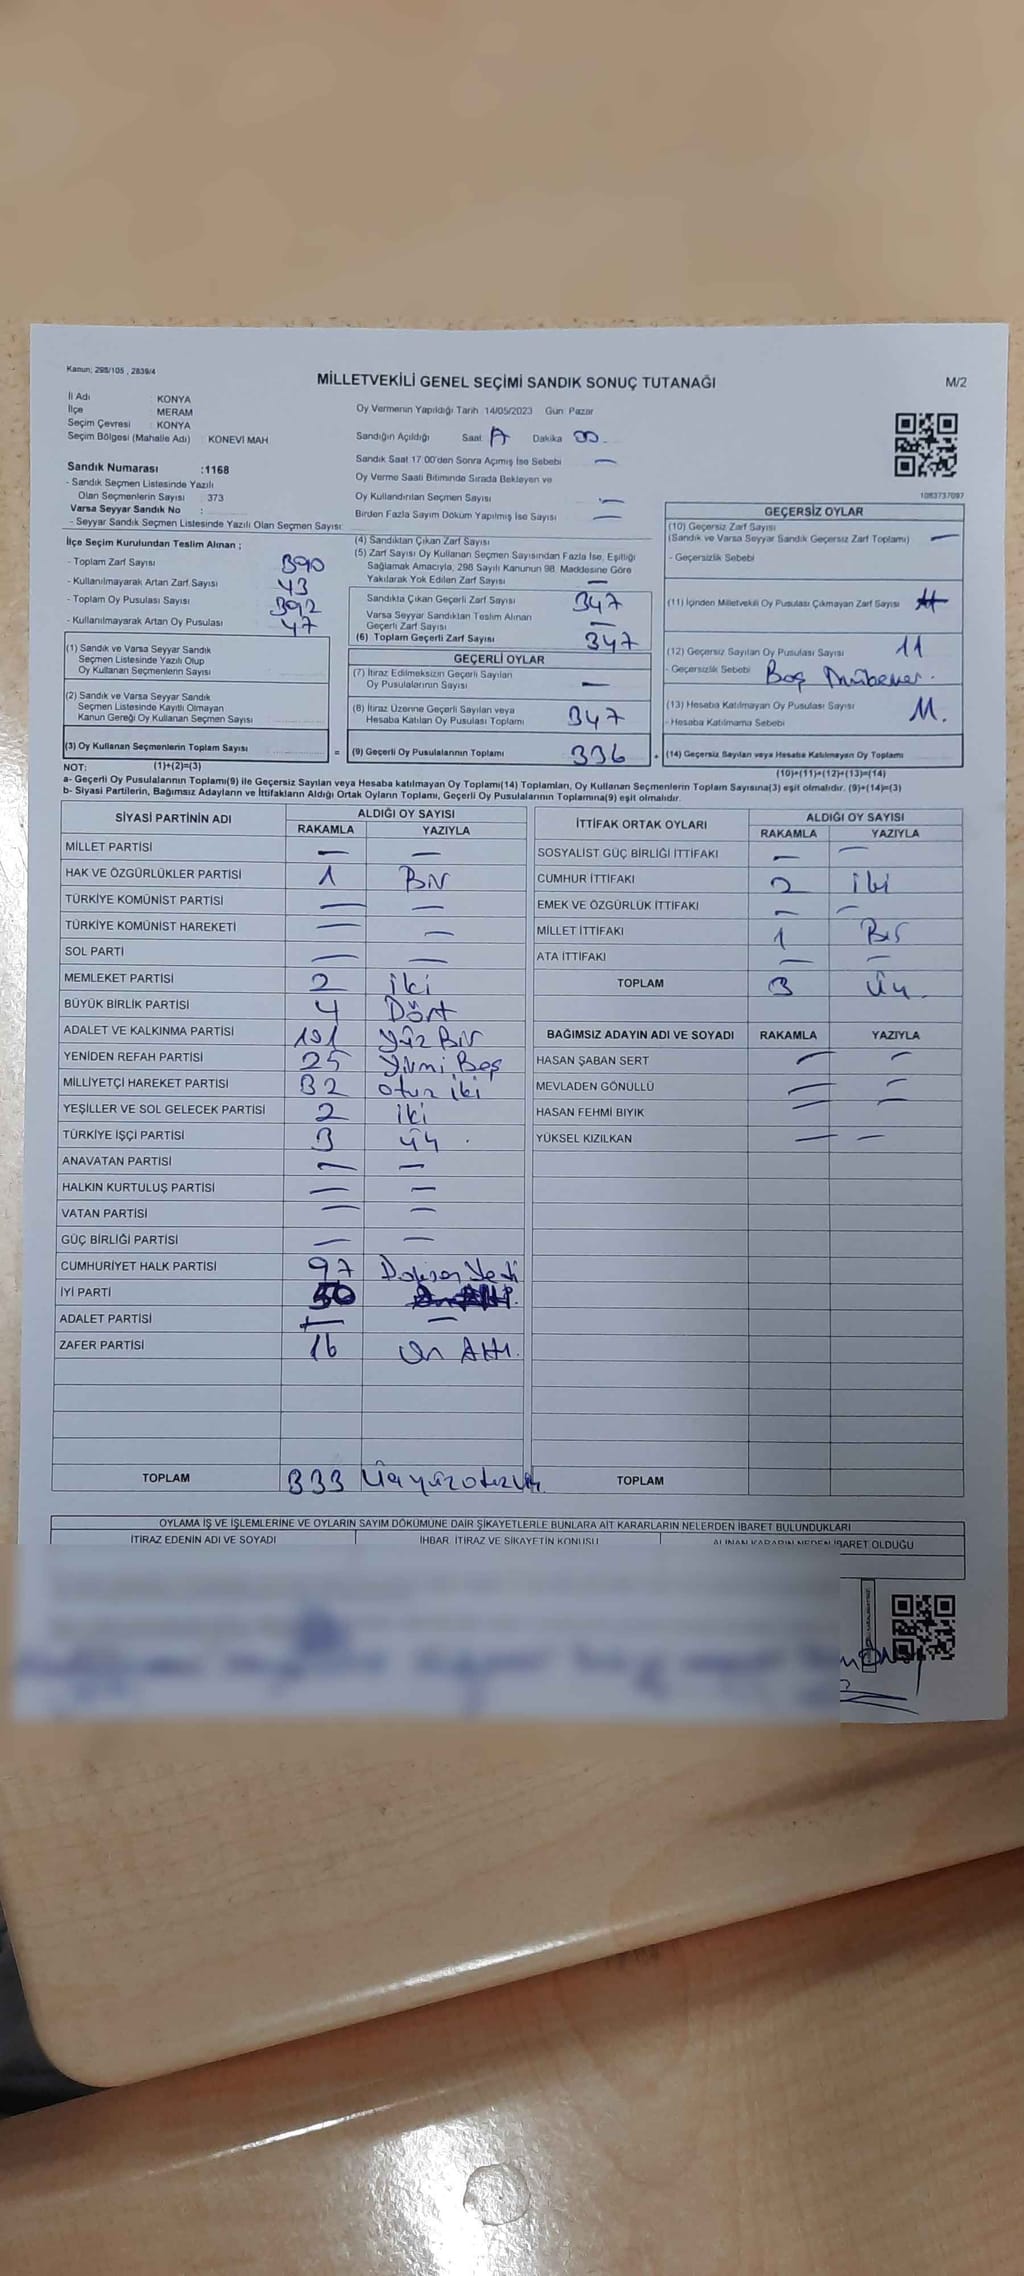 Kanun; 298/105 , 2839/4
MİLLETVEKİLİ GENEL SEÇİMİ SANDIK SONUÇ TUTANAĞI
M/2
İl Adı KONYA
İlçe MERAM
Seçim Çevresi : KONYA
Seçim Bölgesi (Mahalle Adı) : KONEVİ MAH
Sandık Numarası :1168
- Sandık Seçmen Listesinde Yazılı
Olan Seçmenlerin Sayısı : 373
Varsa Seyyar Sandık No :
- Seyyar Sandık Seçmen Listesinde Yazılı Olan Seçmen Sayısı:
Oy Vermenin Yapıldığı Tarih 14/05/2023 Gün: Pazar
Sandığın Açıldığı Saat Dakika 00
Sandık Saat 17:00'den Sonra Açımış İse Sebebi —
Oy Verme Saati Bitiminde Sırada Bekleyen ve
Oy Kullandırılan Seçmen Sayısı —
Birden Fazla Sayım Döküm Yapılmış İse Sayısı —
1083737097
İlçe Seçim Kurulundan Teslim Alınan ;
- Toplam Zarf Sayısı 390
- Kullanılmayarak Artan Zarf Sayısı 43
- Toplam Oy Pusulası Sayısı 392
- Kullanılmayarak Artan Oy Pusulası 47
(1) Sandık ve Varsa Seyyar Sandık
Seçmen Listesinde Yazılı Olup
Oy Kullanan Seçmenlerin Sayısı
(2) Sandık ve Varsa Seyyar Sandık
Seçmen Listesinde Kayıtlı Olmayan
Kanun Gereği Oy Kullanan Seçmen Sayısı
(3) Oy Kullanan Seçmenlerin Toplam Sayısı =
(4) Sandıktan Çıkan Zarf Sayısı
(5) Zarf Sayısı Oy Kullanan Seçmen Sayısından Fazla İse, Eşitliği
Sağlamak Amacıyla, 298 Sayılı Kanunun 98. Maddesine Göre
Yakılarak Yok Edilen Zarf Sayısı —
Sandıkta Çıkan Geçerli Zarf Sayısı 347
Varsa Seyyar Sandıktan Teslim Alınan
Geçerli Zarf Sayısı —
(6) Toplam Geçerli Zarf Sayısı 347
GEÇERLİ OYLAR
(7) İtiraz Edilmeksizin Geçerli Sayılan
Oy Pusulalarının Sayısı —
(8) İtiraz Üzerine Geçerli Sayılan veya
Hesaba Katılan Oy Pusulası Toplamı 347
(9) Geçerli Oy Pusulalarının Toplamı 336
GEÇERSİZ OYLAR
(10) Geçersiz Zarf Sayısı
(Sandık ve Varsa Seyyar Sandık Geçersiz Zarf Toplamı) —
- Geçersizlik Sebebi
(11) İçinden Milletvekili Oy Pusulası Çıkmayan Zarf Sayısı
(12) Geçersiz Sayılan Oy Pusulası Sayısı 11
- Geçersizlik Sebebi Boş Mükerrer.
(13) Hesaba Katılmayan Oy Pusulası Sayısı 11.
- Hesaba Katılmama Sebebi
+ (14) Geçersiz Sayılan veya Hesaba Katılmayan Oy Toplamı
NOT: (1)+(2)=(3)
(10)+(11)+(12)+(13)=(14)
a- Geçerli Oy Pusulalarının Toplamı(9) ile Geçersiz Sayılan veya Hesaba katılmayan Oy Toplamı(14) Toplamları, Oy Kullanan Seçmenlerin Toplam Sayısına(3) eşit olmalıdır. (9)+(14)=(3)
b- Siyasi Partilerin, Bağımsız Adayların ve İttifakların Aldığı Ortak Oyların Toplamı, Geçerli Oy Pusulalarının Toplamına(9) eşit olmalıdır.
SİYASİ PARTİNİN ADI ALDIĞI OY SAYISI
RAKAMLA YAZIYLA
MİLLET PARTİSİ — —
HAK VE ÖZGÜRLÜKLER PARTİSİ 1 Bir
TÜRKİYE KOMÜNİST PARTİSİ — —
TÜRKİYE KOMÜNİST HAREKETİ — —
SOL PARTİ — —
MEMLEKET PARTİSİ 2 iki
BÜYÜK BİRLİK PARTİSİ 4 Dört
ADALET VE KALKINMA PARTİSİ 101 yüz Bir
YENİDEN REFAH PARTİSİ 25 yirmi Beş
MİLLİYETÇİ HAREKET PARTİSİ 32 otuz iki
YEŞİLLER VE SOL GELECEK PARTİSİ 2 iki
TÜRKİYE İŞÇİ PARTİSİ 3 üç .
ANAVATAN PARTİSİ — —
HALKIN KURTULUŞ PARTİSİ — —
VATAN PARTİSİ — —
GÜÇ BİRLİĞİ PARTİSİ — —
CUMHURİYET HALK PARTİSİ 97 Doksan Yedi
İYİ PARTİ 50
ADALET PARTİSİ — —
ZAFER PARTİSİ 16 On Altı.
TOPLAM 333 Üçyüzotuzüç
İTTİFAK ORTAK OYLARI ALDIĞI OY SAYISI
RAKAMLA YAZIYLA
SOSYALİST GÜÇ BİRLİĞİ İTTİFAKI — —
CUMHUR İTTİFAKI 2 iki
EMEK VE ÖZGÜRLÜK İTTİFAKI — —
MİLLET İTTİFAKI 1 Bir
ATA İTTİFAKI — —
TOPLAM 3 Üç.
BAĞIMSIZ ADAYIN ADI VE SOYADI RAKAMLA YAZIYLA
HASAN ŞABAN SERT — —
MEVLADEN GÖNÜLLÜ — —
HASAN FEHMİ BIYIK — —
YÜKSEL KIZILKAN — —
TOPLAM
OYLAMA İŞ VE İŞLEMLERİNE VE OYLARIN SAYIM DÖKÜMÜNE DAİR ŞİKAYETLERLE BUNLARA AİT KARARLARIN NELERDEN İBARET BULUNDUKLARI
İTİRAZ EDENİN ADI VE SOYADI İHBAR, İTİRAZ VE ŞİKAYETİN KONUSU ALINAN KARARIN NEDEN İBARET OLDUĞU